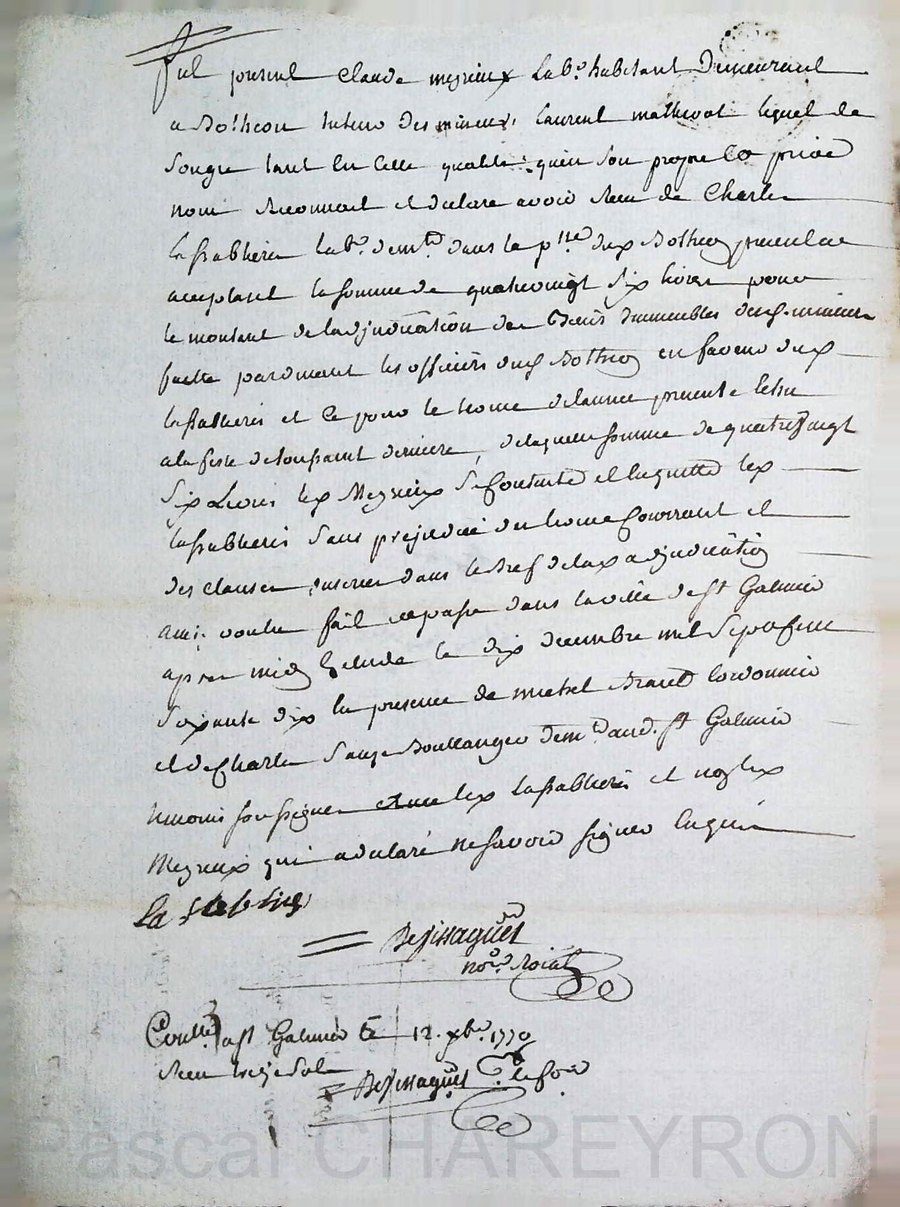 Fut present Claude meynieux lab.r habitant Demeurant
a Botheon tuteur des mineurs laurent mathevot lequel de
Son gre tant en cette qualité qu'en son propre et privé
nom Reconnoit et declare avoir Receu de Charles
la sablieré lab.r dem.t dans la p.sse dud Botheon present et
acceptant la somme de quatrevingt six livres pour
le montant de l'adjudication des Biens immeubles desd. mineurs
faitte pardevant les officiers dud Botheon en faveur dud
lasablieré et ce pour le terme de l'annee presente echu
a la feste de toussaint derniere, de laquelle somme de quatre vingt
Six Livres led Meynieux se Contente et en quitte led
lasablieré sans prejudice du terme Courrant et
des clauses inserées dans le Bref de lad adjudication
ainsi voulu fait et passé dans la ville de St Galmier
apres midy l'etude le dix decembre mil sept cent
soixante dix en presence de michel Brand Cordonnier
et de Charles Sauze Boullanger dem.t aud. St Galmier
temoins soussignes avec led lasablieré et non led
Meynieux qui a declaré ne savoir signer enquis
La Sablire
Dessaignes
no.re Roial
Con.llé a St Galmier le 12. xbre 1770
Receu treize sols
Dessaignes